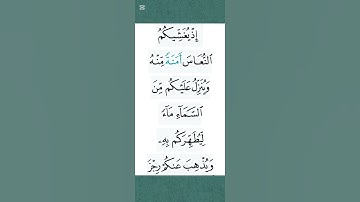 إِذْ يُغَشِّيكُمُ
ٱلنُّعَاسَ أَمَنَةً مِّنْهُ
وَيُنَزِّلُ عَلَيْكُم مِّنَ
ٱلسَّمَآءِ مَآءً
لِّيُطَهِّرَكُم بِهِۦ
وَيُذْهِبَ عَنكُمْ رِجْزَ